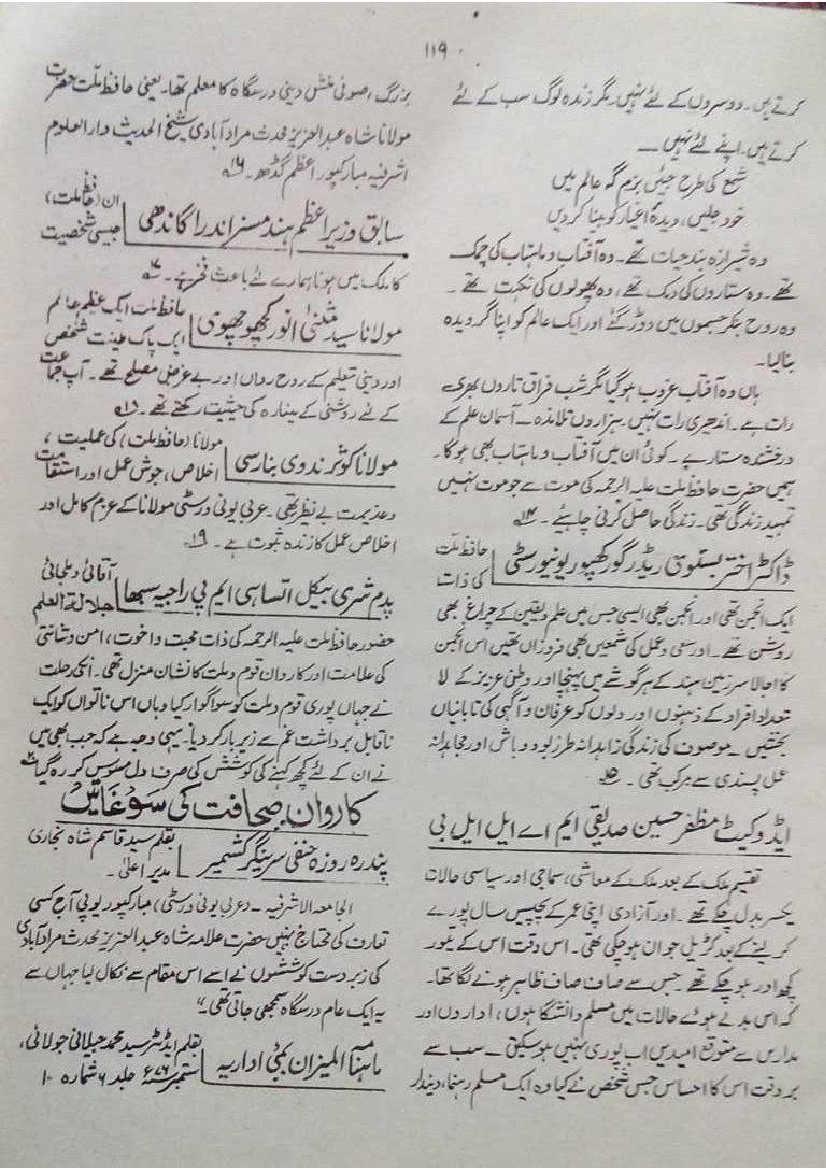 ۱۱۹
کرتے ہیں۔ دوسروں کے لئے نہیں، مگر زندہ لوگ سب کے لئے
کرتے ہیں، اپنے لئے نہیں۔
شمع کی طرح جئیں بزم گہ عالم میں
خود جلیں، دیدۂ اغیار کو بینا کردیں
وہ شیرازہ بند حیات تھے۔ وہ آفتاب و ماہتاب کی چمک
تھے۔ وہ ستاروں کی دمک تھے، وہ پھولوں کی نکہت تھے۔
وہ روح بنکر جسموں میں دوڑ گئے اور ایک عالم کو اپنا گرویدہ
بنالیا۔
ہاں وہ آفتاب غروب ہو گیا مگر شب فراق تاروں بھری
رات ہے۔ اندھیری رات نہیں، ہزاروں تلامذہ۔ آسمان علم کے
درخشندہ ستارے۔ کوئی ان میں آفتاب و ماہتاب بھی ہوگا۔
ہمیں حضرت حافظ ملت علیہ الرحمہ کی موت سے جو موت نہیں
تمہید زندگی تھی۔ زندگی حاصل کرنی چاہیئے۔
ڈاکٹر اختر بستوی ریڈر گورکھپور یونیورسٹی
حافظ ملت
کی ذات
ایک انجمن تھی اور انجمن بھی ایسی جس میں علم و یقین کے چراغ بھی
روشن تھے۔ اور سعی و عمل کی شمعیں بھی فروزاں تھیں اس انجمن
کا اجالا سرزمین ہند کے ہر گوشے میں پہنچا اور وطن عزیز کے لا
تعداد افراد کے ذہنوں اور دلوں کو عرفان و آگہی کی تابانیاں
بخشیں۔ موصوف کی زندگی زاہدانہ طرز بود و باش اور مجاہدانہ
عمل پسندی سے مرکب تھی۔
ایڈوکیٹ مظفر حسین صدیقی ایم اے ایل ایل بی
تقسیم ملک کے بعد ملک کے معاشی، سماجی اور سیاسی حالات
یکسر بدل چکے تھے۔ اور آزادی اپنی عمر کے پچیس سال پورے
کر لینے کے بعد گڑیل جوان ہو چکی تھی۔ اس وقت اس کے تیور
کچھ اور ہو چکے تھے۔ جس سے صاف صاف ظاہر ہونے لگا تھا۔
کہ اس بدلے ہوئے حالات میں مسلم دانشگاہوں، اداروں اور
مدارس سے متوقع امیدیں اب پوری نہیں ہو سکتی۔ سب سے
بروقت اس کا احساس جس شخص نے کیا وہ ایک مسلم رہنما، دیندار
بزرگ، صوفی منش دینی درسگاہ کا معلم تھا۔ یعنی حافظ ملت حضرت
مولانا شاہ عبدالعزیز محدث مرادآبادی شیخ الحدیث دارالعلوم
اشرفیہ مبارکپور اعظم گڈھ۔
سابق وزیر اعظم ہند مسز اندرا گاندھی
ان (حافظ ملت)
جیسی شخصیت
کا ملک میں ہونا ہمارے لئے باعث فخر ہے۔
مولانا سید مثنیٰ انور کچھوچھوی
حافظ ملت ایک عظیم عالم
ایک پاک طینت شخص
اور دینی تعلیم کے روح رواں اور بے غرض مصلح تھے۔ آپ جماعت
کے لئے روشنی کے مینارہ کی حیثیت رکھتے تھے۔
مولانا کوثر ندوی بنارسی
مولانا (حافظ ملت) کی عملیت،
اخلاص، جوش عمل اور استقامت
و عزیمت بے نظیر تھی۔ عربی یونی ورسٹی مولانا کے عزم کامل اور
اخلاص عمل کا زندہ ثبوت ہے۔ ۱۹
پدم شری بیکل اتساہی ایم پی راجیہ سبھا
آقائی و ملجائی
جلالۃ العلم
حضور حافظ ملت علیہ الرحمہ کی ذات محبت و اخوت، امن و شانتی
کی علامت اور کاروان قوم و ملت کا نشان منزل تھی۔ انکی رحلت
نے جہاں پوری قوم و ملت کو سوگوار کیا وہاں اس ناتواں کو ایک
ناقابل برداشت غم سے زیر بار کر دیا۔ یہی وجہ ہے کہ جب بھی میں
نے ان کے لئے کچھ کہنے کی کوشش کی صرف دل مسوس کر رہ گیا
کاروان صحافت کی سوغاتیں
پندرہ روزہ حنفی سرینگر کشمیر
بقلم سید قاسم شاہ بخاری
مدیر اعلیٰ۔
الجامعۃ الاشرفیہ۔ (عربی یونی ورسٹی) مبارکپور یوپی آج کسی
تعارف کی محتاج نہیں حضرت علامہ شاہ عبدالعزیز محدث مرادآبادی
کی زبردست کوششوں نے اسے اس مقام سے نکال لیا جہاں سے
یہ ایک عام درسگاہ سمجھی جاتی تھی۔
ماہنامہ المیزان بمبئی اداریہ
بقلم ایڈیٹر سید محمد جیلانی جولائی،
ستمبر ۷۶ء جلد ۶ شمارہ ۱۰